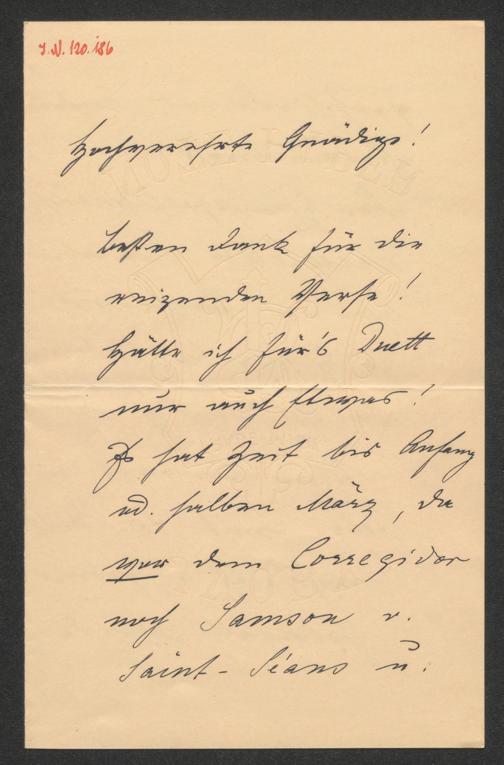 I.N. 120.186
Hochverehrte Gnädige!
besten Dank für die
reizenden Verse!
Hätte ich für's Duett
nur auch Etwas!
Es hat Zeit bis Anfang
od. halben März, da
vor dem Corregidor
noch Samson v.
Saint-Séans u.